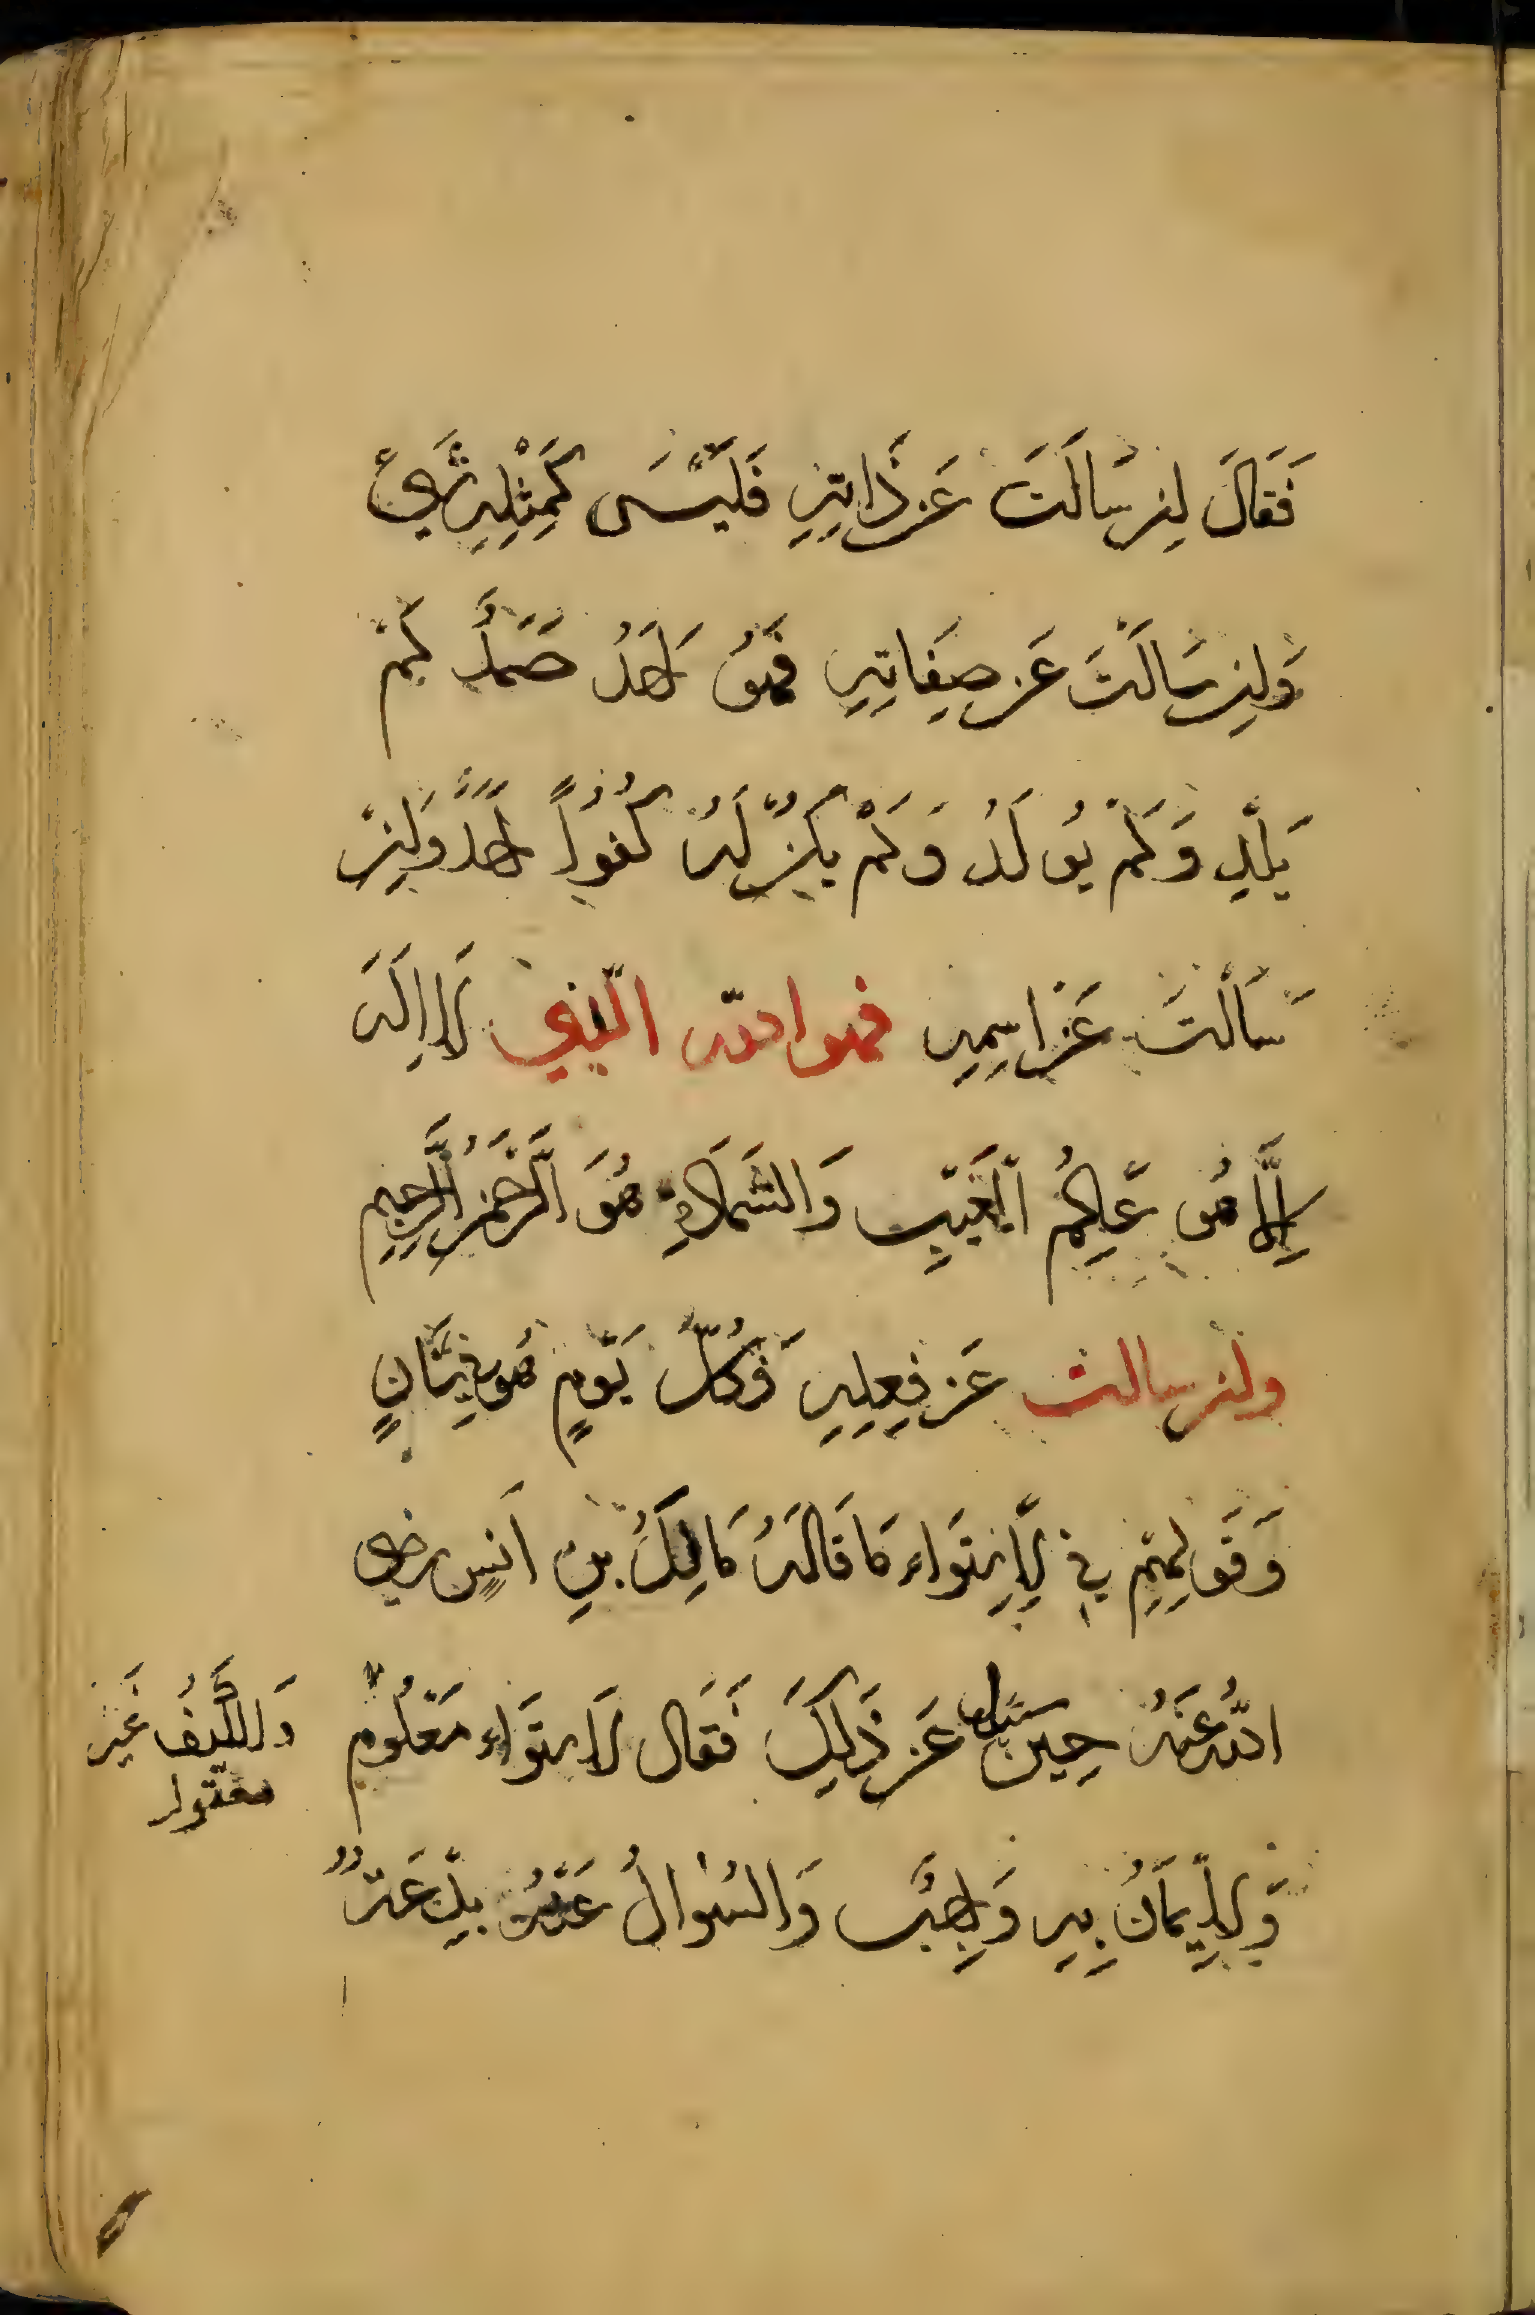 فَقَالَ لِنْ سَالَتَ عَن ذَاتِهِ فَلَيْسَ كَمِثْلِهِ شَيءٌ
وَلِن سَالَتَ عَن صِفَاتِهِ فَهُوَ اَحَدُ صَمَدٌ لَمْ
يَلِدِ وَلَمْ يُولَدُ وَلَمْ يَكُن لَهُ كُفُوًا اَحَدٌ وَلِنْ
سَالْتَ عَن اسِمِهِ فهو الله الّذي لَا اِلَهَ
اِلَّا هُوَ عَلِمُ الْغَيْبِ وَالشَهَادَةِ هُوَ الَرَّحْمَنُ الَرَّحِيمِ
ولن سالت عَن فِعِلِهِ فَكُلَّ يَوْمٍ هُو فِي شَانٍ
وَقَولِهِمِ فِي لِاسْتِوَاء مَا قَالَهُ مَالِكُ بنِ اَنسٍ رضي
اللّهُ عَنَهُ حِين سُئِل عَن ذَلِكَ فَقَال لَاسْتوَاء مَعْلُومٌ
وَالكَيفُ غَير
معقول
وَلِايمَانُ بِهِ وَاجِبٌ وَالسُوَالُ عَنْهُ بِدْعَةٌ